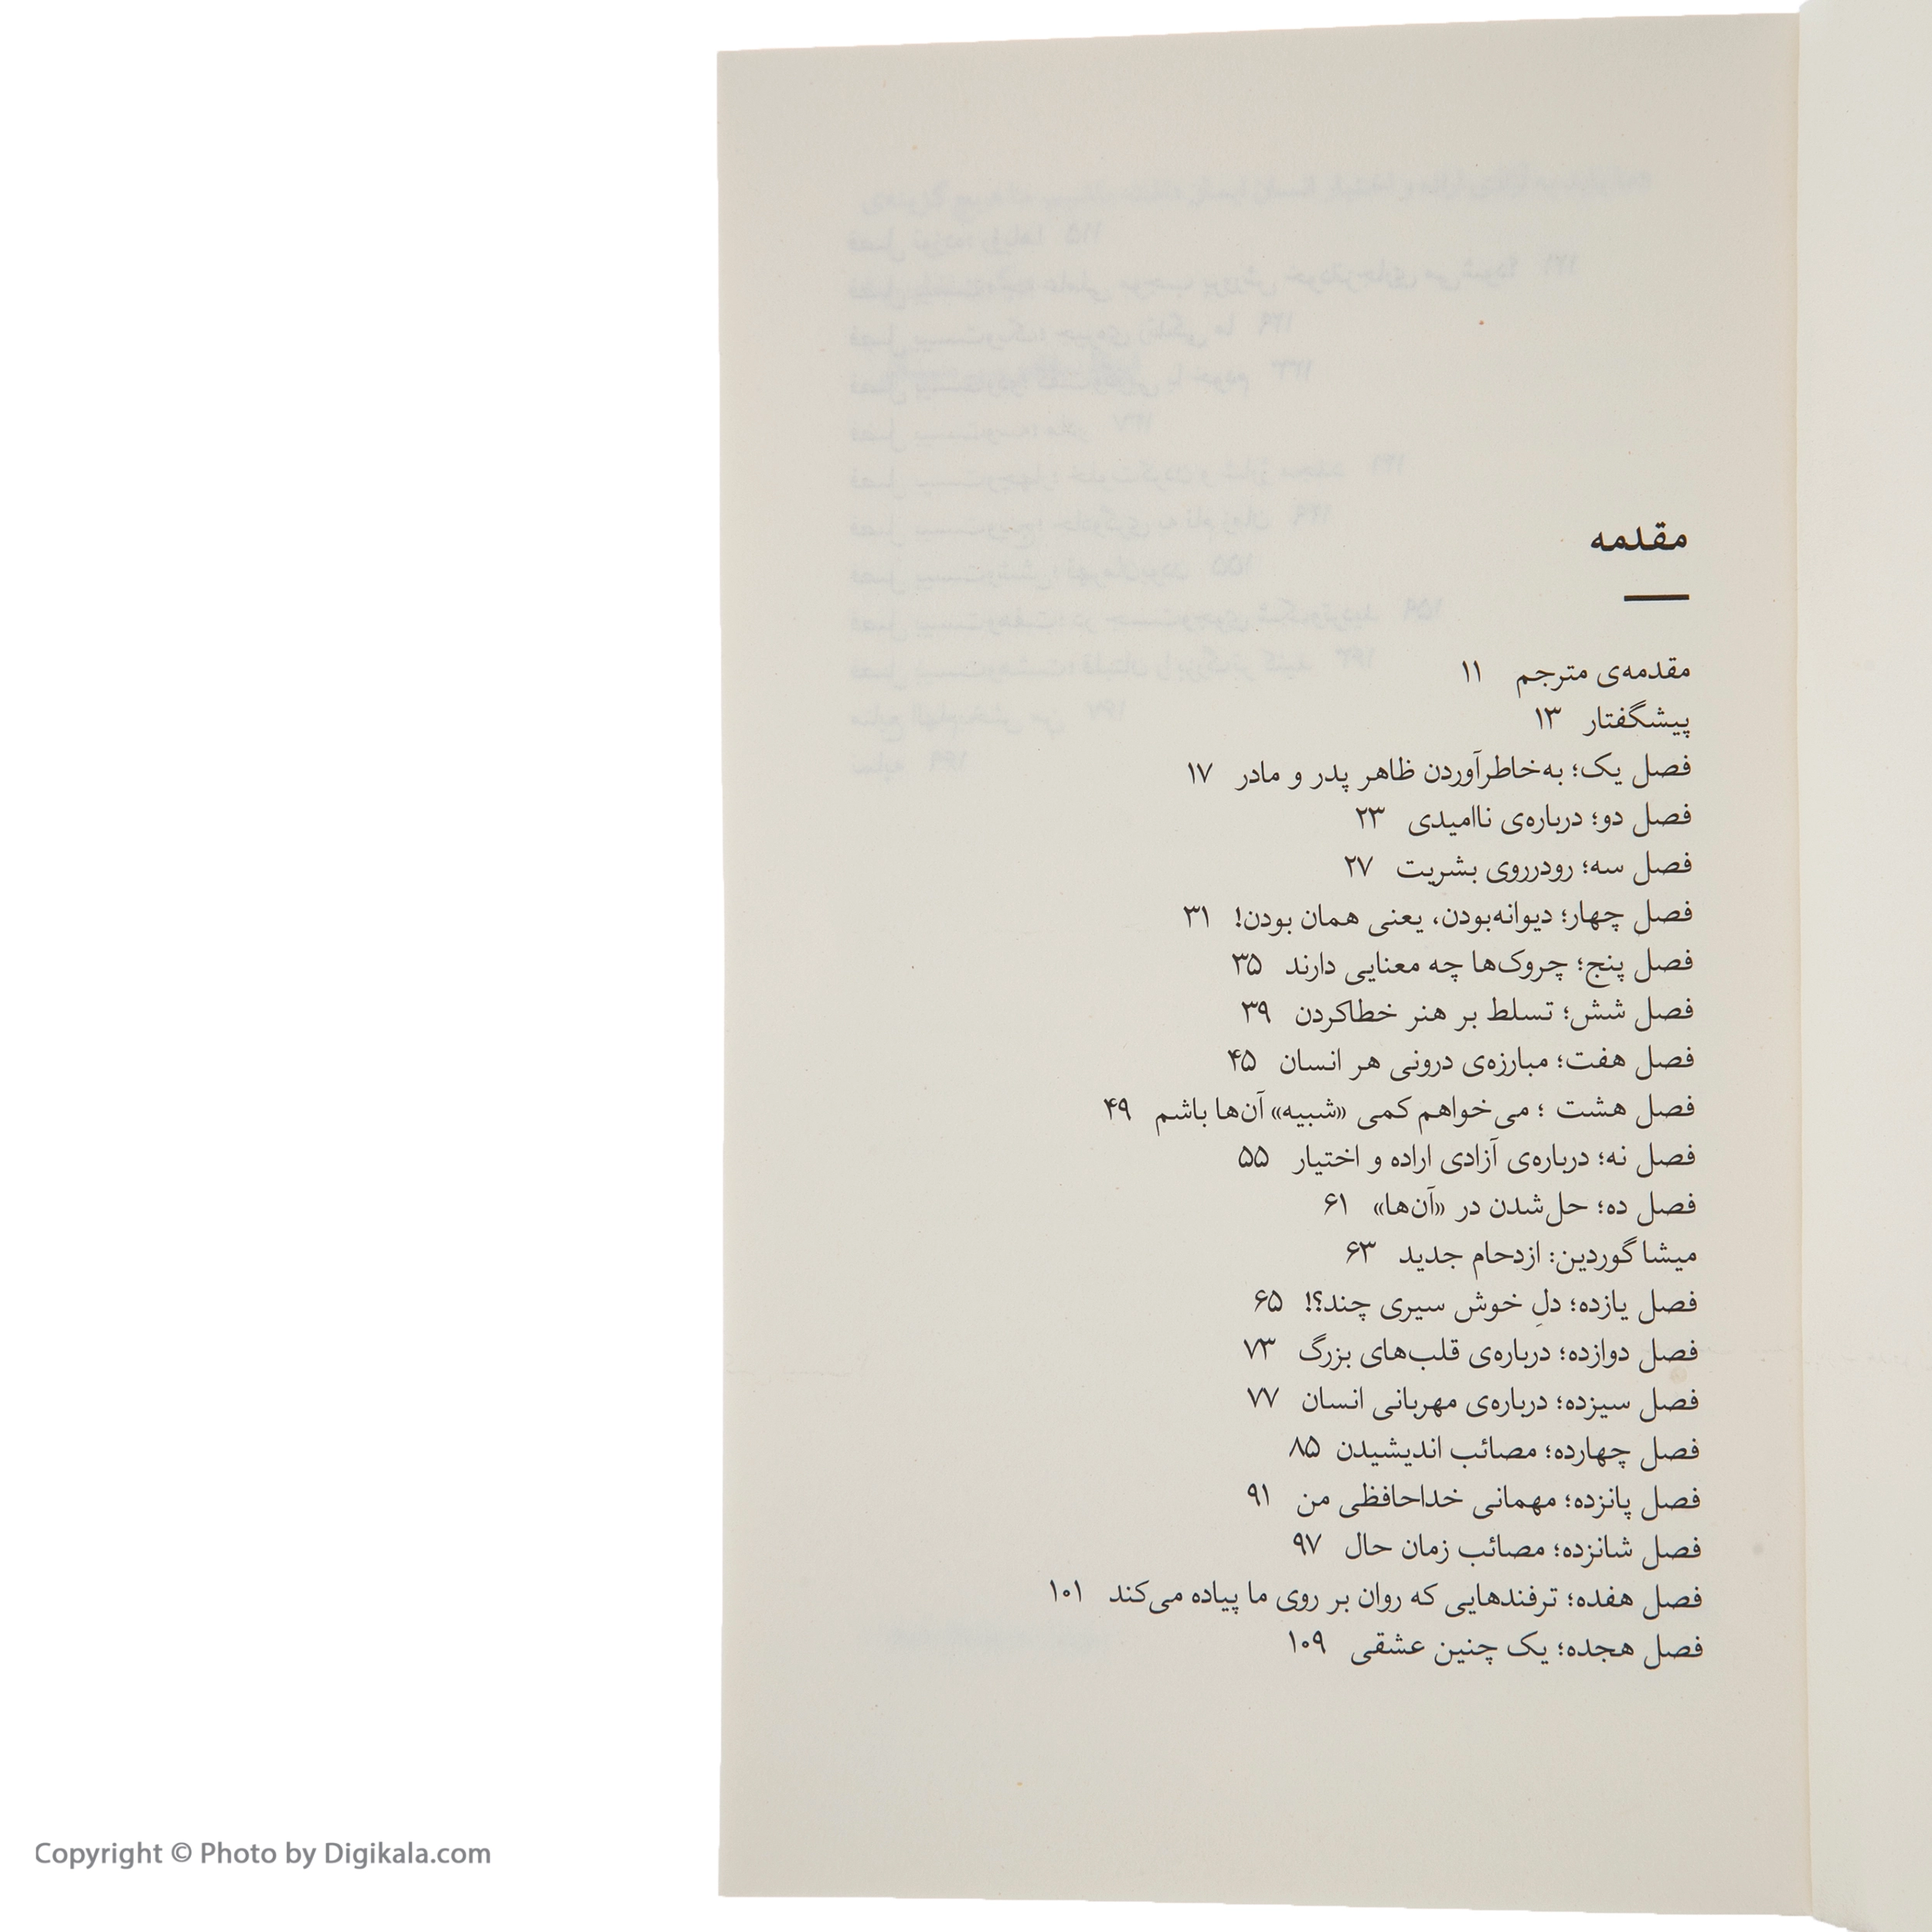 مقدمه
مقدمه‌ی مترجم ۱۱
پیشگفتار ۱۳
فصل یک؛ به‌خاطرآوردن ظاهر پدر و مادر ۱۷
فصل دو؛ درباره‌ی ناامیدی ۲۳
فصل سه؛ رودرروی بشریت ۲۷
فصل چهار؛ دیوانه‌بودن، یعنی همان بودن! ۳۱
فصل پنج؛ چروک‌ها چه معنایی دارند ۳۵
فصل شش؛ تسلط بر هنر خطاکردن ۳۹
فصل هفت؛ مبارزه‌ی درونی هر انسان ۴۵
فصل هشت ؛ می‌خواهم کمی «شبیه» آن‌ها باشم ۴۹
فصل نه؛ درباره‌ی آزادی اراده و اختیار ۵۵
فصل ده؛ حل‌شدن در «آن‌ها» ۶۱
میشا گوردین: ازدحام جدید ۶۳
فصل یازده؛ دلِ خوش سیری چند؟! ۶۵
فصل دوازده؛ درباره‌ی قلب‌های بزرگ ۷۳
فصل سیزده؛ درباره‌ی مهربانی انسان ۷۷
فصل چهارده؛ مصائب اندیشیدن ۸۵
فصل پانزده؛ مهمانی خداحافظی من ۹۱
فصل شانزده؛ مصائب زمان حال ۹۷
فصل هفده؛ ترفندهایی که روان بر روی ما پیاده می‌کند ۱۰۱
فصل هجده؛ یک چنین عشقی ۱۰۹
Copyright © Photo by Digikala.com